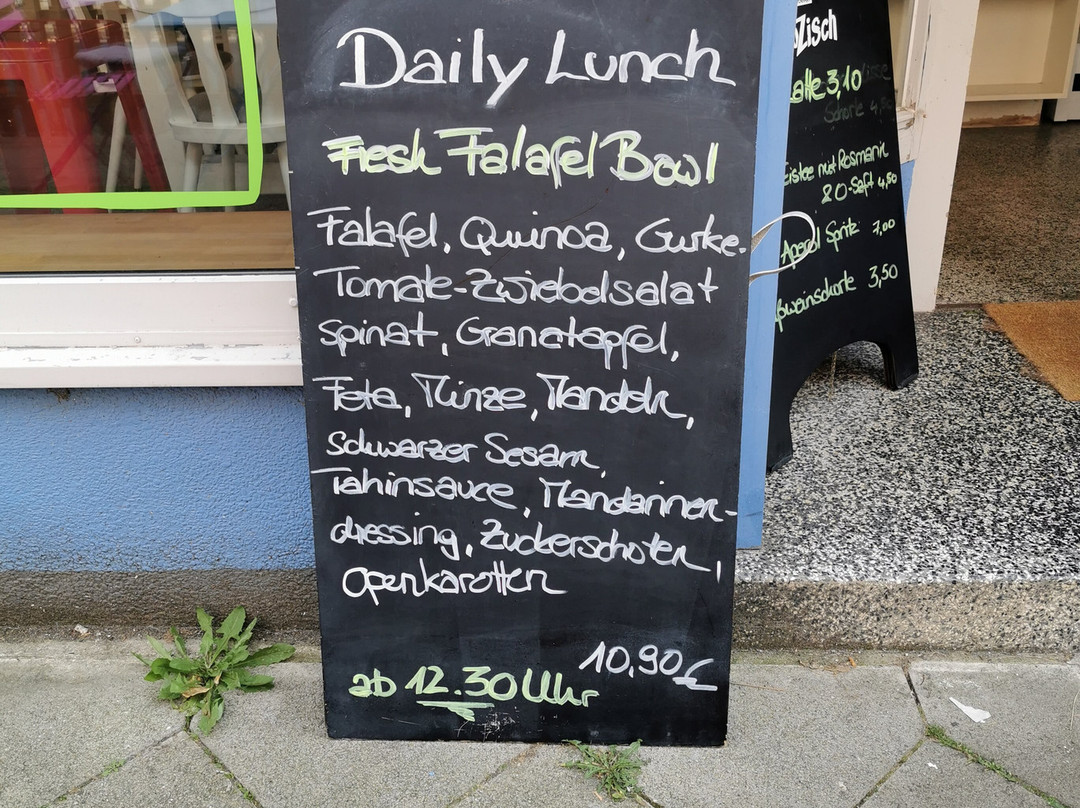 Daily Lunch
Fresh Falafel Bowl
Falafel, Quinoa, Gurke-
Tomate-Zwiebelsalat
Spinat, Granatapfel,
Feta, Minze, Mandeln,
Schwarzer Sesam,
Tahinsauce, Mandarinen-
dressing, Zuckerschoten,
Ofenkarotten
10,90€
ab 12.30 Uhr
Zisch
3,10
Schorle 4,50
Eistee mit Rosmarin
&O-Saft 4,50
Aperol Spritz 7,00
weinschorle 3,50